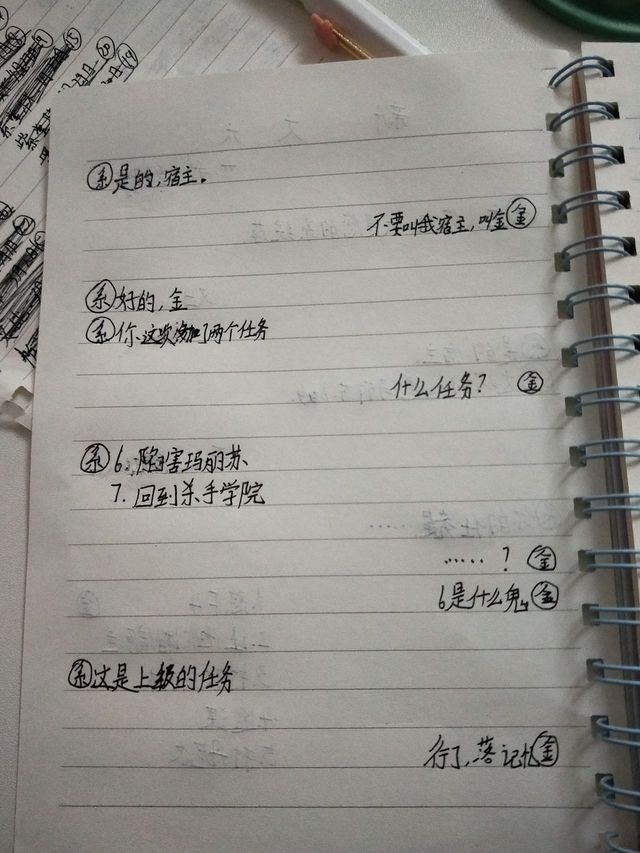 系 是的,宿主。
不要叫我宿主,叫金 金
系 好的,金
系 你这次添加了两个任务
什么任务? 金
系 6. 陷害玛丽苏
7. 回到杀手学院
……? 金
6是什么鬼 金
系 这是上级的任务
行了,落记忆 金